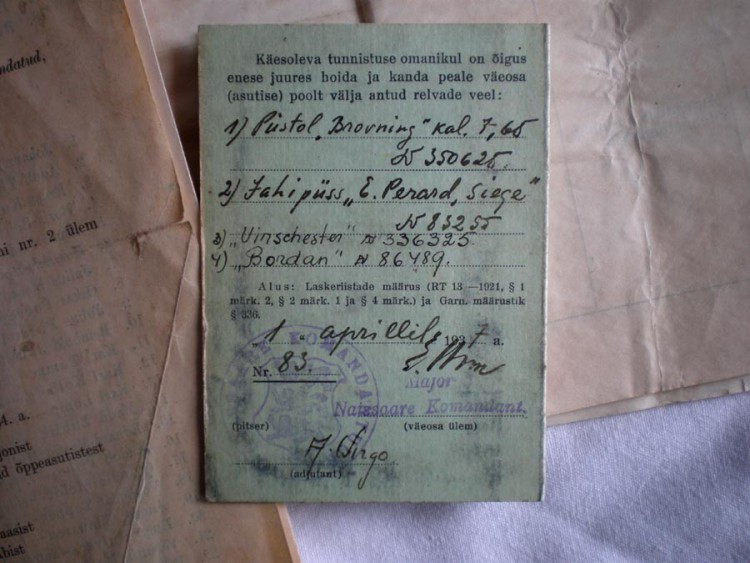 Käesoleva tunnistuse omanikul on õigus
enese juures hoida ja kanda peale väeosa
(asutise) poolt välja antud relvade veel:
1) Püstol „Brovning" kal. 7,65
№ 350625.
2) Jahipüss „E. Perard, Siege"
№ 83255
3) „Vinschester" № 336325
4) „Bordan" № 86489.
Alus: Laskeriistade määrus (RT 13—1921, § 1
märk. 2, § 2 märk. 1 ja § 4 märk.) ja Garn. määrustik
§ 336.
„1" aprillil 1937 a.
Nr. 83.
Major
Naissaare Komandant.
(pitser) (väeosa ülem)
(adjutant)
KOMANDA
ndatud,
ni nr. 2 ülem
4. a.
jonist
d õppeasutistest
aasist
bist